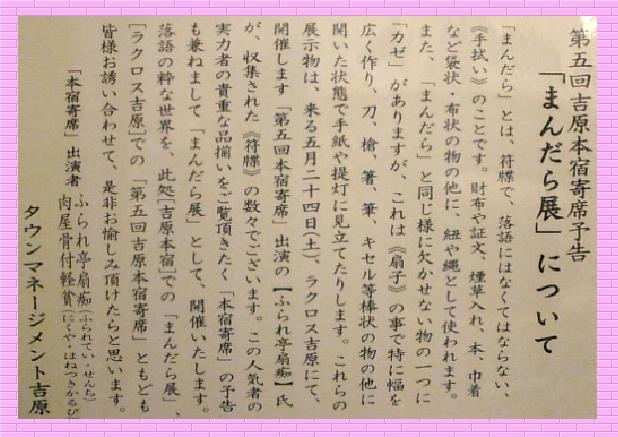 第五回吉原本宿寄席予告
「まんだら展」について
「まんだら」とは、符牒で、落語にはなくてはならない、
《手拭い》のことです。財布や証文、煙草入れ、本、巾着
など袋状・布状の物の他に、紐や縄として使われます。
また、「まんだら」と同じ様に欠かせない物の一つに
「カゼ」がありますが、これは《扇子》の事で特に幅を
広く作り、刀、槍、箸、筆、キセル等棒状の物の他に
開いた状態で手紙や提灯に見立てたりします。これらの
展示物は、来る五月二十四日(土)、ラクロス吉原にて、
開催します「第五回本宿寄席」出演の【ふられ亭扇痴】氏
が、収集された《符牒》の数々でございます。この人気者の
実力者の貴重な品揃いをご覧頂きたく「本宿寄席」の予告
も兼ねまして「まんだら展」として、開催いたします。
落語の粋な世界を、此処[吉原本宿]での「まんだら展」、
[ラクロス吉原]での「第五回吉原本宿寄席」ともども
皆様お誘い合わせて、是非お愉しみ頂けたらと思います。
「本宿寄席」出演者 ふられ亭扇痴(ふられてい・せんち)
肉屋骨付軽賛(にくや・ほねつきかるび)
タウンマネージメント吉原